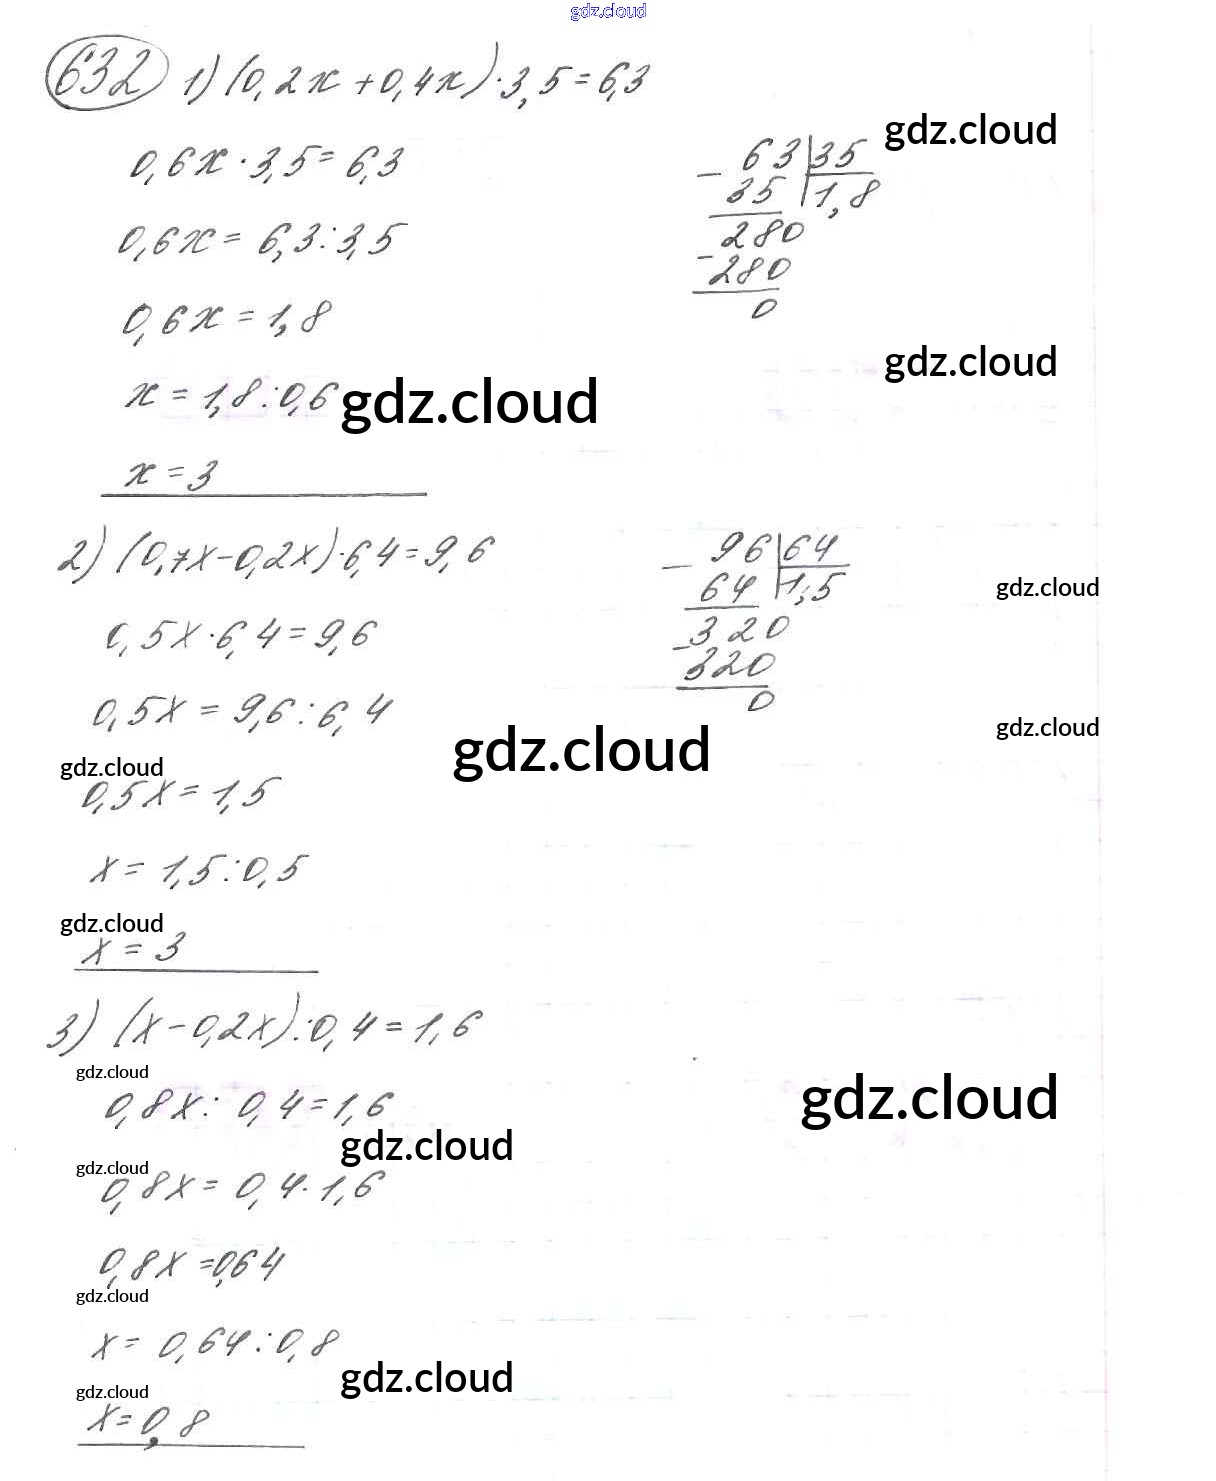 gdz.cloud
632 1) (0,2x + 0,4x) · 3,5 = 6,3
gdz.cloud
0,6x · 3,5 = 6,3
0,6x = 6,3 : 3,5
0,6x = 1,8
x = 1,8 : 0,6
gdz.cloud
x = 3
- 63 | 35
35 | 1,8
280
- 280
0
gdz.cloud
2) (0,7x - 0,2x) · 6,4 = 9,6
0,5x · 6,4 = 9,6
0,5x = 9,6 : 6,4
gdz.cloud
gdz.cloud
0,5x = 1,5
x = 1,5 : 0,5
gdz.cloud
x = 3
- 96 | 64
64 | 1,5
- 320
320
0
gdz.cloud
gdz.cloud
3) (x - 0,2x) : 0,4 = 1,6
gdz.cloud
0,8x : 0,4 = 1,6
gdz.cloud
gdz.cloud
gdz.cloud
0,8x = 0,4 · 1,6
0,8x = 0,64
gdz.cloud
x = 0,64 : 0,8
gdz.cloud
gdz.cloud
x = 0,8